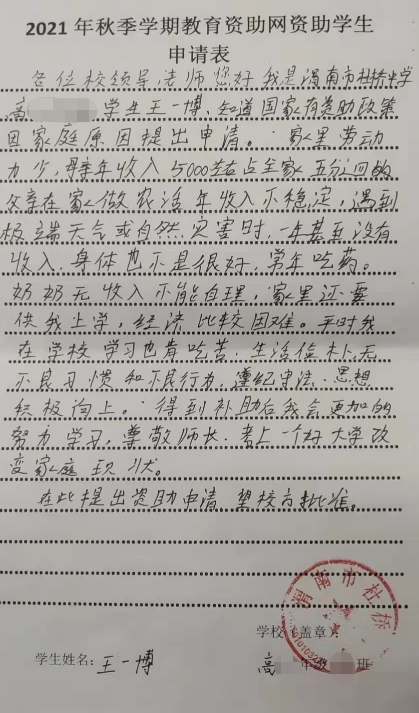 2021年秋季学期教育资助网资助学生
申请表
各位校领导,老师您好我是渭南市杜桥中学
高 学生王一博、知道国家有资助政策
因家庭原因提出申请。家里劳动
力少,母亲年收入5000左右占全家五分之四的
父亲在家做农活年收入不稳定,遇到
极端天气或自然灾害时,一年甚至没有
收入.身体也不是很好,常年吃药。
奶奶无收入不能自理,家里还要
供我上学,经济比较困难。平时我
在学校学习也肯吃苦.生活俭朴、无
不良习惯和不良行为,遵纪守法、思想
积极向上。得到补助后我会更加的
努力学习,尊敬师长.考上一个好大学改
变家庭现状。
在此提出资助申请望校方批准。
渭南市杜桥
学校(盖章):
学生姓名:王一博
高 年级 班